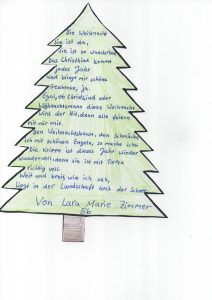 Die Weihnacht
sie ist da,
Sie ist so wunderbar.
Das Christkind kommt
jedes Jahr
und bringt mir schöne
Geschenke, ja.
Egal, ob Christkind oder
Weihnachtsmann diese Weihnacht
wird der Hit, denn alle feiern
mit mir mit.
Den Weihnachtsbaum, den schmücke
ich mit schönen Engeln, so mache ich
Die Krippe ist dieses Jahr wieder
wundervoll, denn sie ist mit Tieren
richtig voll.
Weit und breit wie ich seh,
liegt in der Landschaft hoch der Schnee.
Von Lara Marie Zimmer
5b